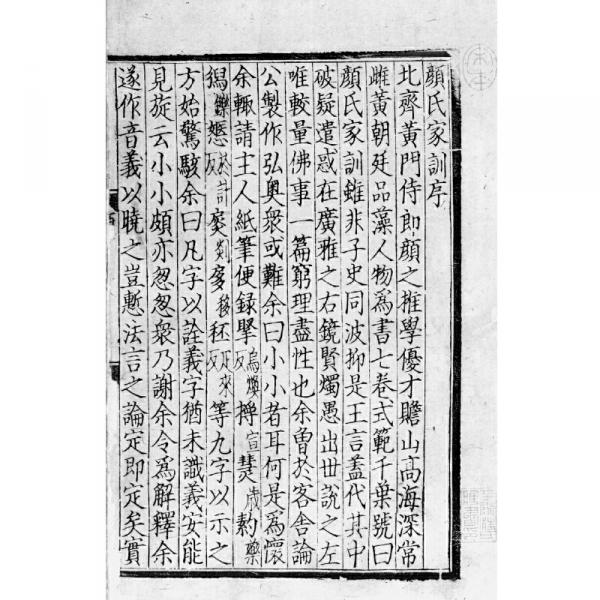 顏氏家訓序
北齊黃門侍郎顏之推學優才贍山高海深常
雌黃朝廷品藻人物爲書七卷式範千葉號曰
顏氏家訓雖非子史同波抑是王言蓋代其中
破疑遣惑在廣雅之右鏡賢燭愚出世說之左
唯較量佛事一篇窮理盡性也余曾於客舍論
公製作弘奧衆或難余曰小小者耳何是爲懷
余輙請主人紙筆便録掔烏煥反𢶍宣熭歲剺藥
獡鑠㦣於計反㝥剡㝥移秠疋來反等九字以示之
方始驚駭余曰凡字以詮義字猶未識義安能
見旋云小小頗亦忩忩衆乃謝余令爲解釋余
遂作音義以曉之豈慙法言之論定即定矣實